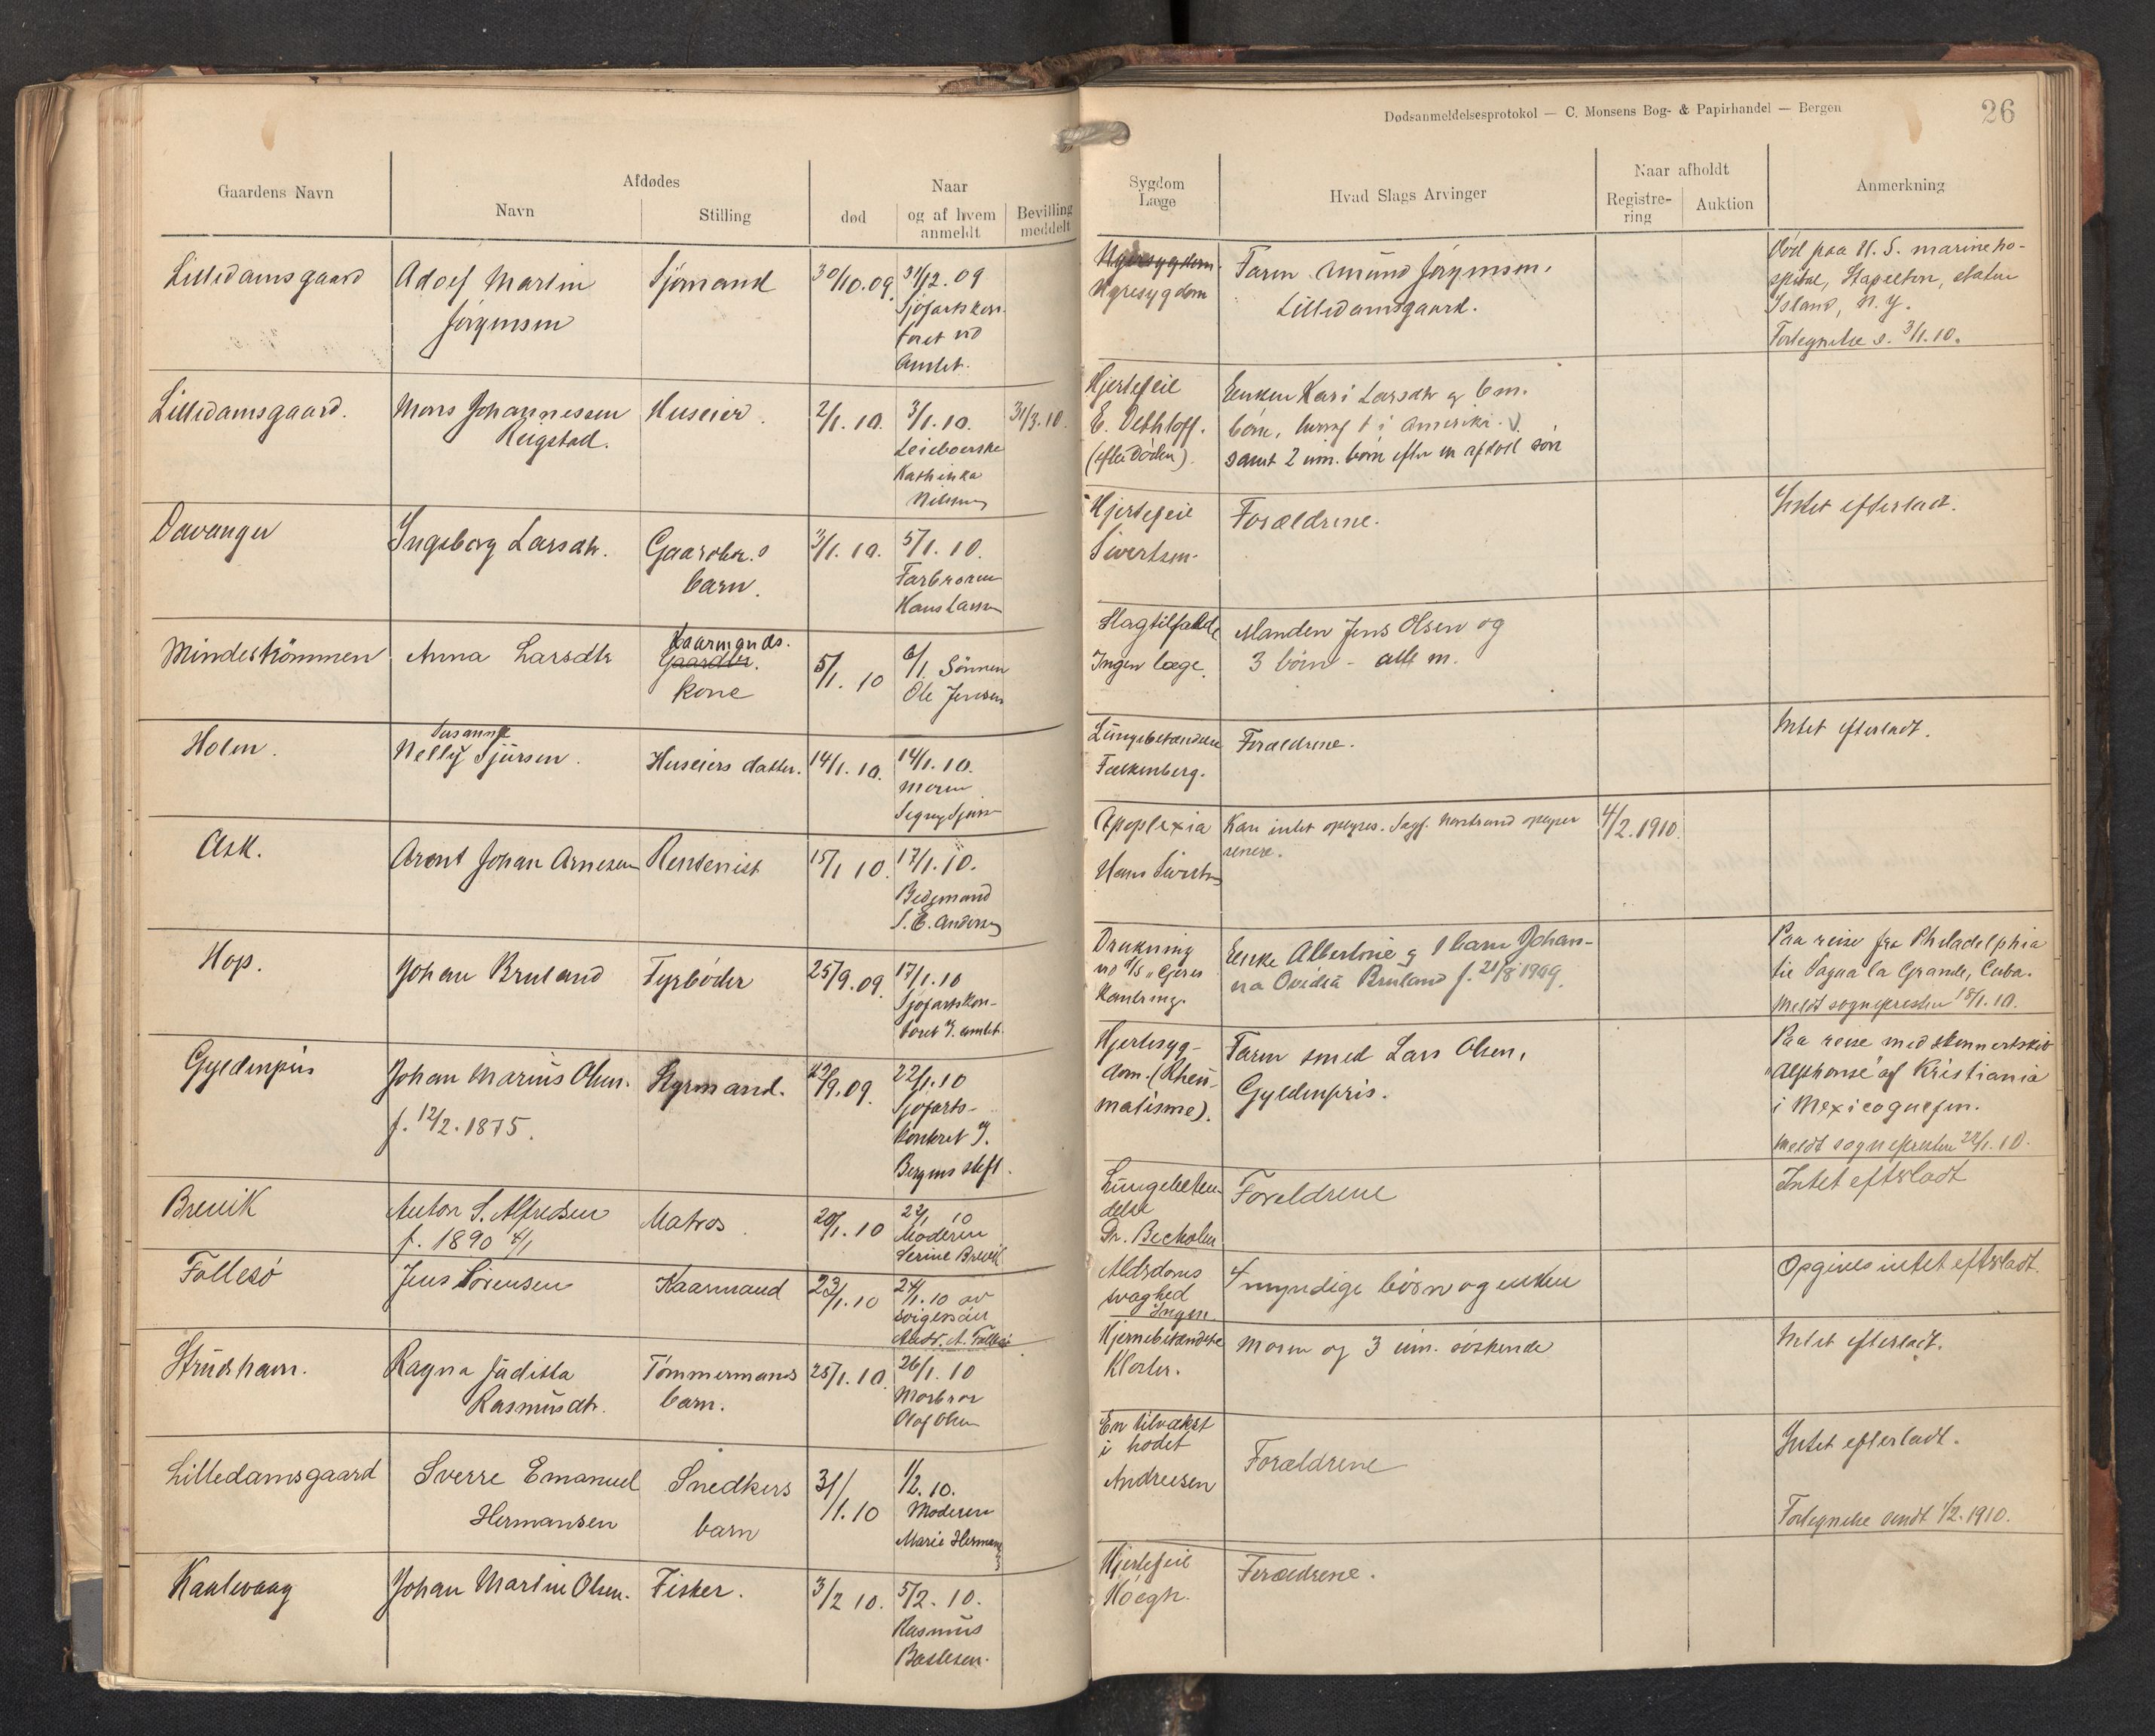 Dødsanmeldelsesprotokol — C. Monsens Bog- & Papirhandel — Bergen
26
Gaardens Navn
Afdødes
Navn
Stilling
død
Naar
og af hvem
anmeldt
Bevilling
meddelt
Sygdom
Læge
Hvad Slags Arvinger
Naar afholdt
Registre-
ring
Auktion
Anmerkning
Lilledamsgaard
Adolf Martin
Jørgensen
Sjømand
30/10.09.
31/12.09
Sjøfartskon-
toret ved
Amtet.
Nyresygdom
Nyresygdom
Faren Amund Jørgensen,
Lilledamsgaard.
Død paa U. S. marineho-
spital, Stapelton, staten
Island, N. Y.
Fortegnelse s. 3/1.10.
Lilledamsgaard.
Mons Johannessen
Reigstad.
Huseier.
2/1.10.
3/1.10.
Leieboerske
Kathinka
Nilssen
31/3.10.
Hjertefeil
E. Dethloff.
(efter Døden).
Enken Kari Larsdtr og 6 m.
børn, hvoraf 1 i Amerika.
samt 2 um. børn efter en afdød søn
Davanger
Ingeborg Larsdtr.
Gaardbr.s
barn.
3/1.10.
5/1.10.
Farbroren
Hans Larsen
Hjertefeil
Sivertsen.
Forældrene.
Intet efterladt.
Mindeströmmen
Anna Larsdtr
Kaarmands.
Gaardbr.
kone
5/1.10
6/1. Sønnen
Ole Jensen
Slagtilfælde
Ingen læge.
Manden Jens Olsen og
3 börn - alle m.
Holen.
Susanne
Nelly Sjursen.
Huseiers datter.
14/1.10.
14/1.10.
Moren
Signy Sjursen
Lungebetændelse
Falkenberg.
Forældrene.
Intet efterladt.
Ask.
Arent Johan Arnesen
Rentenist
15/1 10.
17/1.10.
Bedemand
S. E. Andersen
Apoplexia
Hans Sivertsen
Kan intet opgives. Sagf. Nordstrand opgiver
senere.
4/2.1910.
Hop.
Johan Bruland
Fyrbøder
25/9.09.
17/1.10
Sjøfartskon-
toret v. amtet.
Drukning
ved d/s "Gjeres
kantring.
Enke Albertine og 1 barn Johan-
na Ovidia Bruland f. 21/8 1909.
Paa reise fra Philadelphia
til Sagua la Grande, Cuba.
Meldt sognepresten 18/1.10.
Gyldenpris
Johan Marius Olsen.
f. 12/2.1875.
Styrmand.
/9.09.
22/1.10
Sjøfarts-
kontoret v.
Bergens stift.
Hjertesyg-
dom. (Rheu-
matisme).
Faren smed Lars Olsen,
Gyldenpris.
Paa reise med skonnertskib
"Alphonse" af Kristiania
i Mexicogulfen.
Meldt sognepresten 22/1.10.
Brevik
Anton S. Alfredsen
f. 1890 4/1
Matros.
20/1.10
22/1 10
Moderen
Serine Brevik
Lungebeten-
delse
Dr. Beckolm
Foreldrene
Intet efterladt
Follesö
Jens Sörensen
Kaarmand
23/1.10
24/1.10 av
svigersön
Andr. A. Follesö
Alderdoms
svaghed
Ingen.
4 myndige börn og enken
Opgives intet efterladt.
Strudshavn.
Ragna Juditta
Rasmusdtr.
Tømmermands
barn.
25/1.10
26/1.10
Morbror
Olaf Olsen
Hjernebetændelse
Kloster.
Moren og 3 um. søskende
Intet efterladt.
Lilledamsgaard
Sverre Emanuel
Hermansen
Snedkers
barn
31/1.10
1/2.10.
Moderen
Marie Hermansen
En tilvækst
i hodet
Andreesen
Forældrene
Intet efterladt.
Fortegnelse sendt 1/2.1910.
Kaalevaag
Johan Martin Olsen.
Fisker.
3/2 10.
5/2.10.
Rasmus
Baslesen.
Hjertefeil
Høegh.
Forældrene.